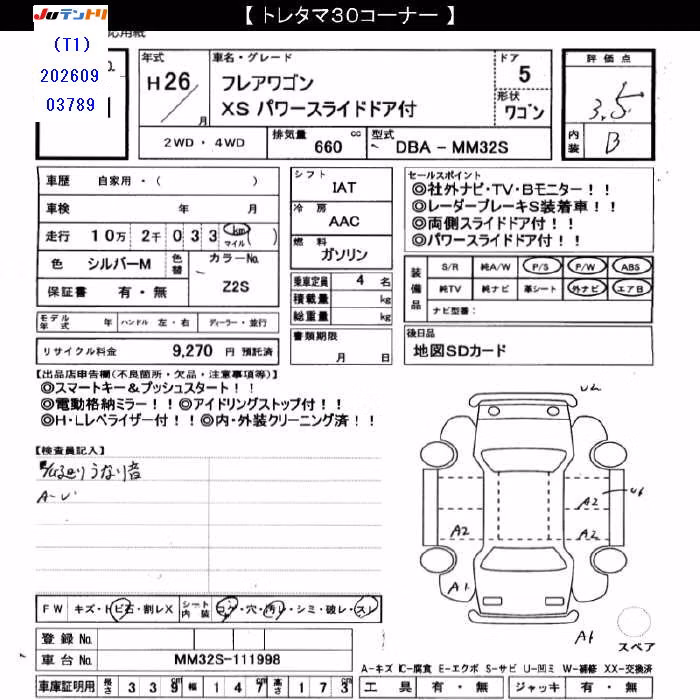 【 トレタマ30コーナー 】
JUテントリ
(T1)
202609
03789
応用紙
年式
H26
月
車名・グレード
フレアワゴン
XS パワースライドドア付
ドア
5
形状
ワゴン
評価点
3.5
内装
B
2WD・4WD
排気量
660 cc
型式
DBA－MM32S
車歴 自家用・( )
車検 年 月
走行 10万 2千 0 3 3 km マイル ( )
色 シルバーM
色替
カラーNo.
Z2S
保証書 有・無
モデル年式 年 ハンドル 左・右 ディーラー・並行
リサイクル料金 9,270 円 預託済
シフト
IAT
冷房
AAC
燃料
ガソリン
乗車定員 4 名
積載量 kg
総重量 kg
書類期限
月 日
セールスポイント
◎社外ナビ・TV・Bモニター！！
◎レーダーブレーキS装着車！！
◎両側スライドドア付！！
◎パワースライドドア付！！
装備品
S/R 純A/W P/S P/W ABS
純TV 純ナビ 革シート 外ナビ エアB
ナビ型番：
後日品
地図SDカード
【出品店申告欄(不良箇所・欠品・注意事項等)】
◎スマートキー＆プッシュスタート！！
◎電動格納ミラー！！◎アイドリングストップ付！！
◎H・Lレベライザー付！！◎内・外装クリーニング済！！
【検査員記入】
うなり音
A-U
U2
U6
A2
A2
A2
A1
A1
スペア
FW キズ・トビ石・割レX
シート内装
コゲ・穴・汚レ・シミ・破レ・スレ
登録No.
車台No. MM32S-111998
車庫証明用 長さ 3 3 9 cm 幅 1 4 7 cm 高さ 1 7 3 cm
A-キズ C-腐食 E-エクボ S-サビ U-凹ミ W-補修 XX-交換済
工具 有・無 ジャッキ 有・無